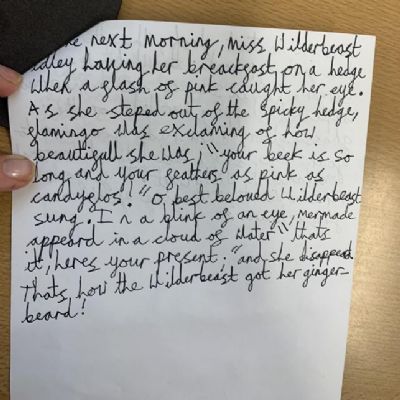 the next morning, miss Wilderbeast
having her breackfast on a hedge
when a flash of pink caught her eye.
As she steped out of the spicky hedge,
flamingo was exclaming of how
beautifull she was, "your beek is so
long and your feathers as pink as
candyflos!" "o, best beloved Wilderbeast
sung. In a blink of an eye, mermade
appeard in a cloud of water" thats
it, heres your present," and she disappeard.
Thats how the Wilderbeast got her ginger
beard!